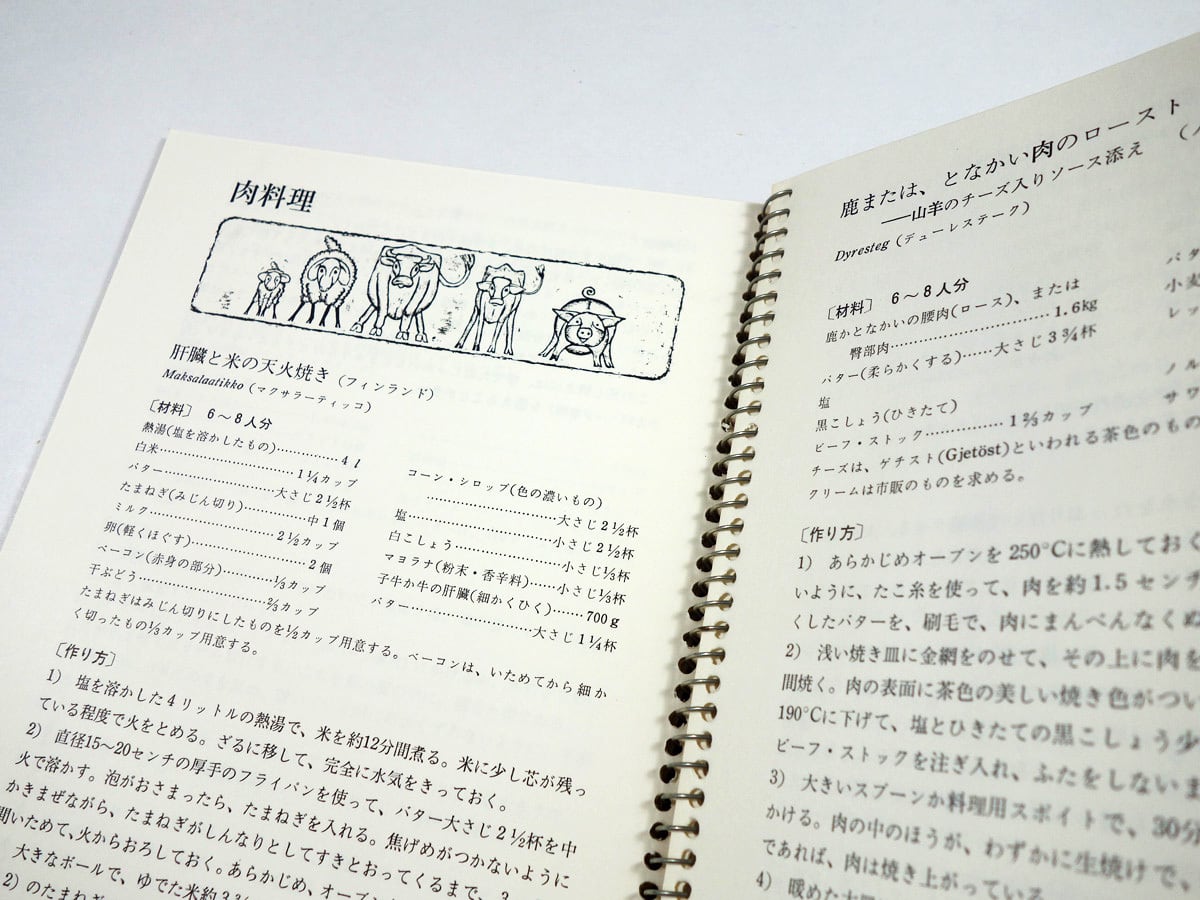 肉料理
肝臓と米の天火焼き（フィンランド）
Maksalaatikko（マクサラーティッコ）
〔材料〕 6〜8人分
熱湯(塩を溶かしたもの)…………4 l
白米……………………1¼カップ
バター……………大さじ2½杯
たまねぎ(みじん切り)…………中1個
ミルク……………………2½カップ
卵(軽くほぐす)……………………2個
ベーコン(赤身の部分)…………⅓カップ
干ぶどう……………………⅔カップ
コーン・シロップ(色の濃いもの)
……………………大さじ2½杯
塩……………………小さじ2½杯
白こしょう……………………小さじ⅓杯
マヨラナ(粉末・香辛料)……小さじ⅓杯
子牛か牛の肝臓(細かくひく)……700g
バター……………………大さじ1¼杯
たまねぎはみじん切りにしたものを½カップ用意する。ベーコンは、いためてから細か
く切ったもの⅓カップ用意する。
〔作り方〕
1) 塩を溶かした4リットルの熱湯で、米を約12分間煮る。米に少し芯が残っ
ている程度で火をとめる。ざるに移して、完全に水気をきっておく。
2) 直径15〜20センチの厚手のフライパンを使って、バター大さじ2½杯を中
火で溶かす。泡がおさまったら、たまねぎを入れる。焦げめがつかないように
かきまぜながら、たまねぎがしんなりとしてすきとおってくるまで、3
間いためて、火からおろしておく。あらかじめ、オーブン
大きなボールで、ゆでた米約3¾
2) のたまねぎ
鹿または、となかい肉のロースト
――山羊のチーズ入りソース添え
Dyresteg（デューレステーク）
〔材料〕 6〜8人分
鹿かとなかいの腰肉(ロース)、または
臀部肉……………………1.6kg
バター(柔らかくする)……大さじ3¾杯
塩
黒こしょう(ひきたて)
ビーフ・ストック……………1⅔カップ
チーズは、ゲチスト(Gjetöst)といわれる茶色のもの
クリームは市販のものを求める。
バタ
小麦
レッ
ノル
サワ
〔作り方〕
1) あらかじめオーブンを250°Cに熱しておく
いように、たこ糸を使って、肉を約1.5センチ
くしたバターを、刷毛で、肉にまんべんなくぬ
2) 浅い焼き皿に金網をのせて、その上に肉を
間焼く。肉の表面に茶色の美しい焼き色がつい
190°Cに下げて、塩とひきたての黒こしょう少
ビーフ・ストックを注ぎ入れ、ふたをしないま
3) 大きいスプーンか料理用スポイトで、30分
かける。肉の中のほうが、わずかに生焼けで、
であれば、肉は焼き上がっている
4) 暖めた大皿